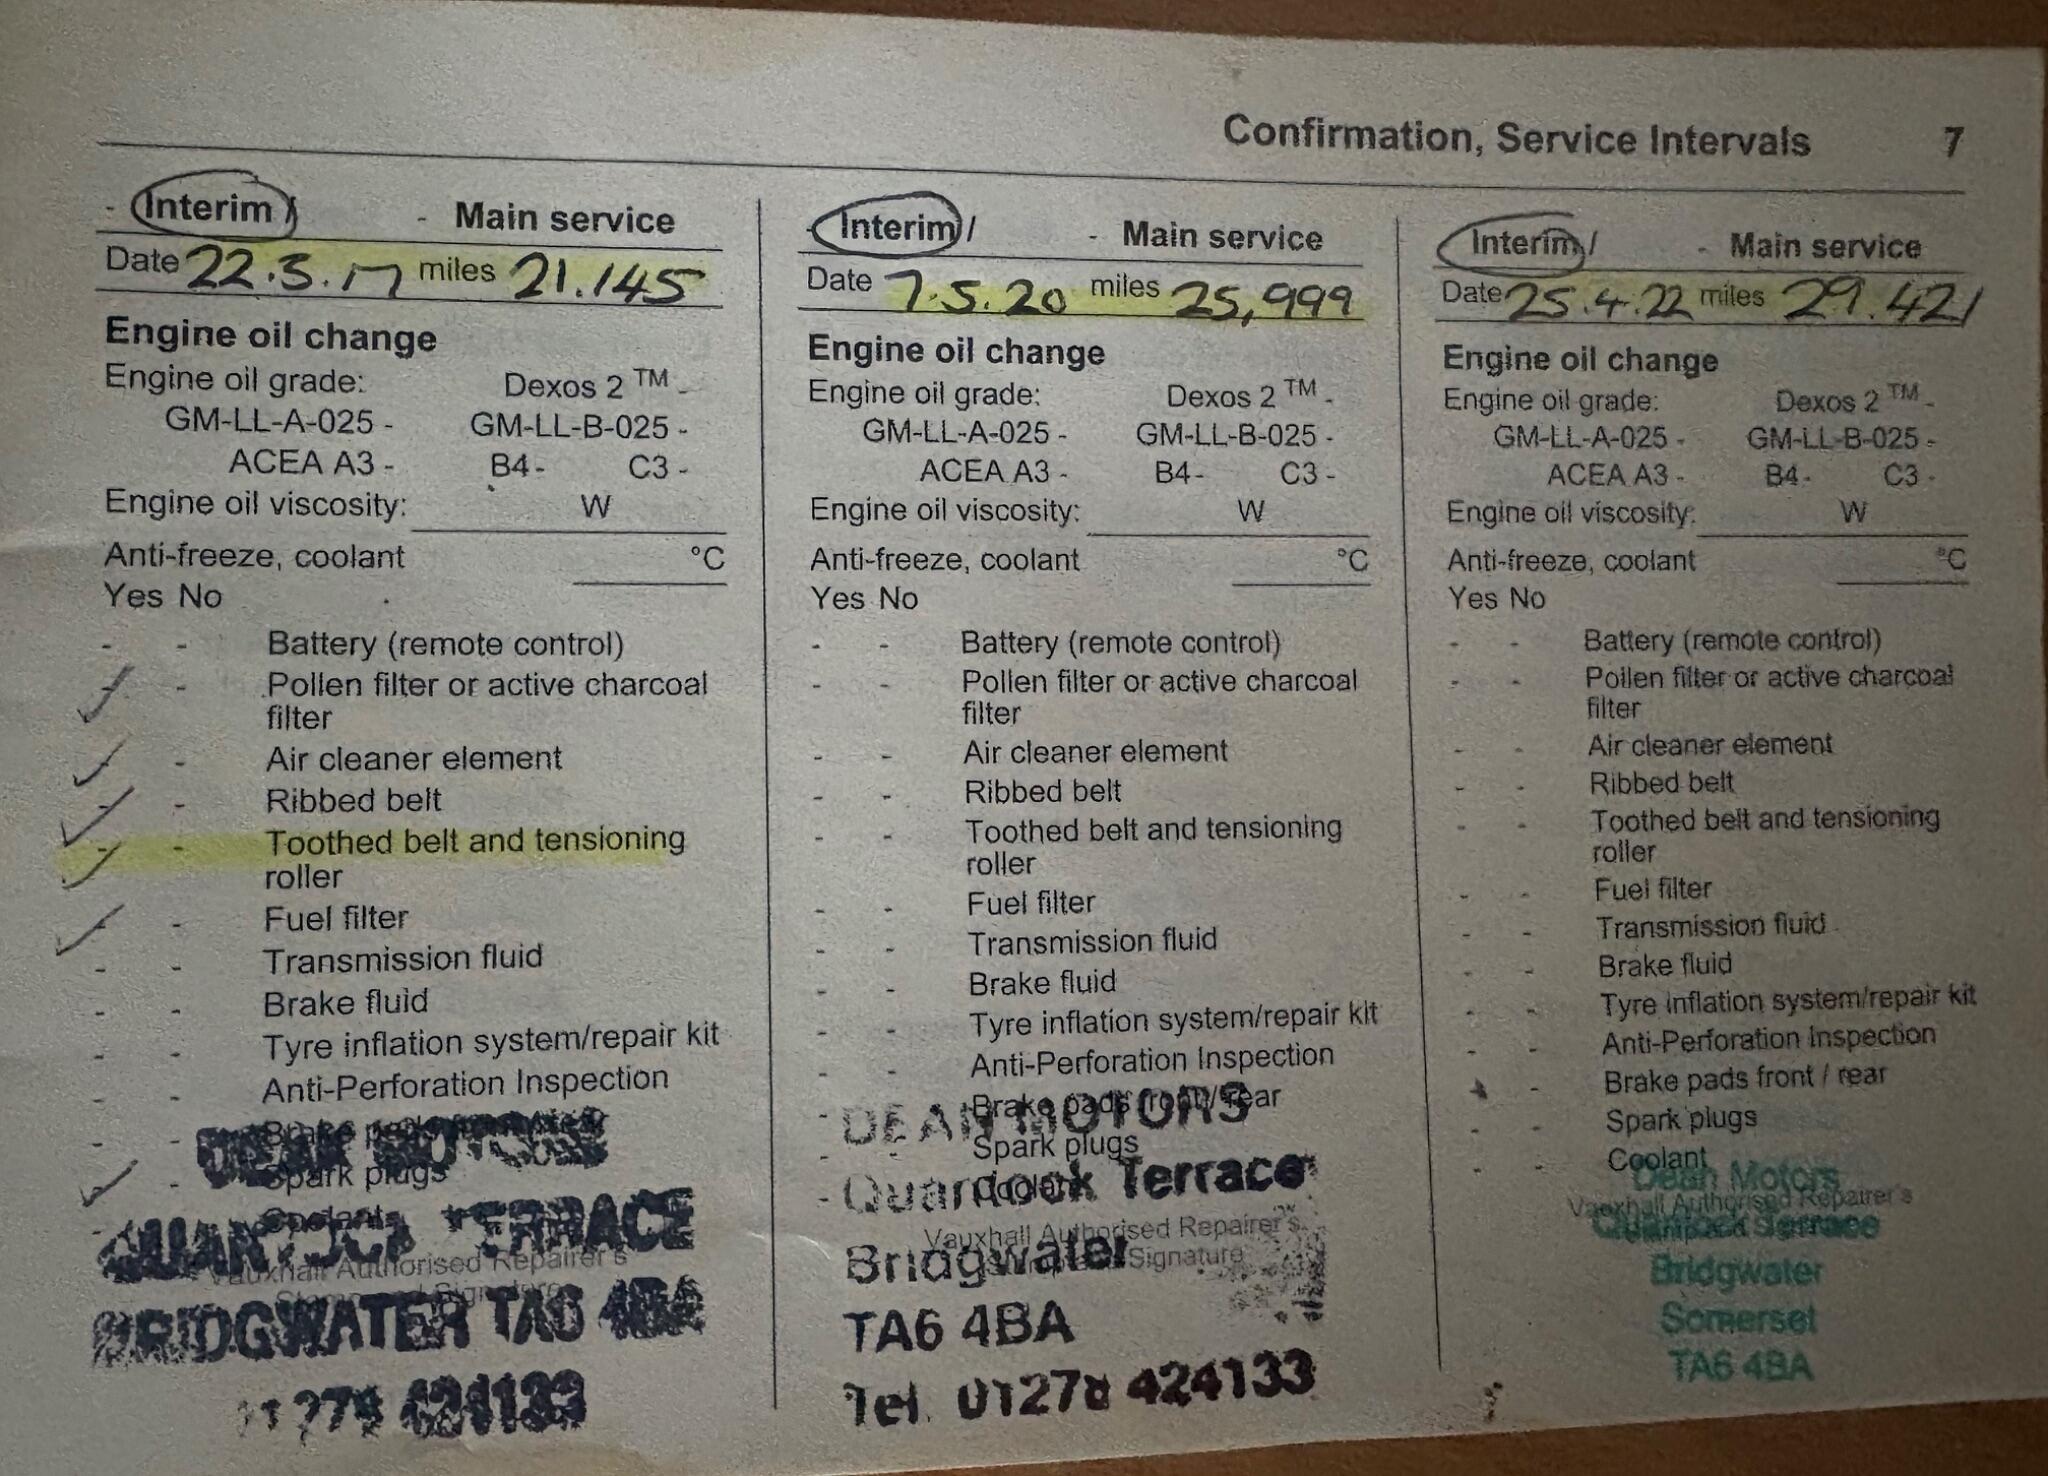 Confirmation, Service Intervals 7
- Interim / - Main service
Date 22.3.17 miles 21.145
Engine oil change
Engine oil grade: Dexos 2 TM -
GM-LL-A-025 - GM-LL-B-025 -
ACEA A3 - B4 - C3 -
Engine oil viscosity: W
Anti-freeze, coolant °C
Yes No
- - Battery (remote control)
✓ - Pollen filter or active charcoal
filter
✓ - Air cleaner element
✓ - Ribbed belt
✓ - Toothed belt and tensioning
roller
✓ - Fuel filter
- - Transmission fluid
- - Brake fluid
- - Tyre inflation system/repair kit
- - Anti-Perforation Inspection
- - Brake pads
DEAN MOTORS
✓ - Spark plugs
- - Coolant
QUANTOCK TERRACE
Vauxhall Authorised Repairer's
Signature
BRIDGWATER TA6 4BA
424133
- Interim / - Main service
Date 7.5.20 miles 25,999
Engine oil change
Engine oil grade: Dexos 2 TM -
GM-LL-A-025 - GM-LL-B-025 -
ACEA A3 - B4 - C3 -
Engine oil viscosity: W
Anti-freeze, coolant °C
Yes No
- - Battery (remote control)
- - Pollen filter or active charcoal
filter
- - Air cleaner element
- - Ribbed belt
- - Toothed belt and tensioning
roller
- - Fuel filter
- - Transmission fluid
- - Brake fluid
- - Tyre inflation system/repair kit
- - Anti-Perforation Inspection
- - Brake pads front / rear
DEAN MOTORS
- - Spark plugs
- - Coolant
Quantock Terrace
Vauxhall Authorised Repairer's
Signature
Bridgwater
TA6 4BA
Tel. 01278 424133
- Interim / - Main service
Date 25.4.22 miles 29.421
Engine oil change
Engine oil grade: Dexos 2 TM -
GM-LL-A-025 - GM-LL-B-025 -
ACEA A3 - B4 - C3 -
Engine oil viscosity: W
Anti-freeze, coolant °C
Yes No
- - Battery (remote control)
- - Pollen filter or active charcoal
filter
- - Air cleaner element
- - Ribbed belt
- - Toothed belt and tensioning
roller
- - Fuel filter
- - Transmission fluid
- - Brake fluid
- - Tyre inflation system/repair kit
- - Anti-Perforation Inspection
- - Brake pads front / rear
- - Spark plugs
- - Coolant
Dean Motors
Vauxhall Authorised Repairer's
Quantock Terrace
Bridgwater
Somerset
TA6 4BA